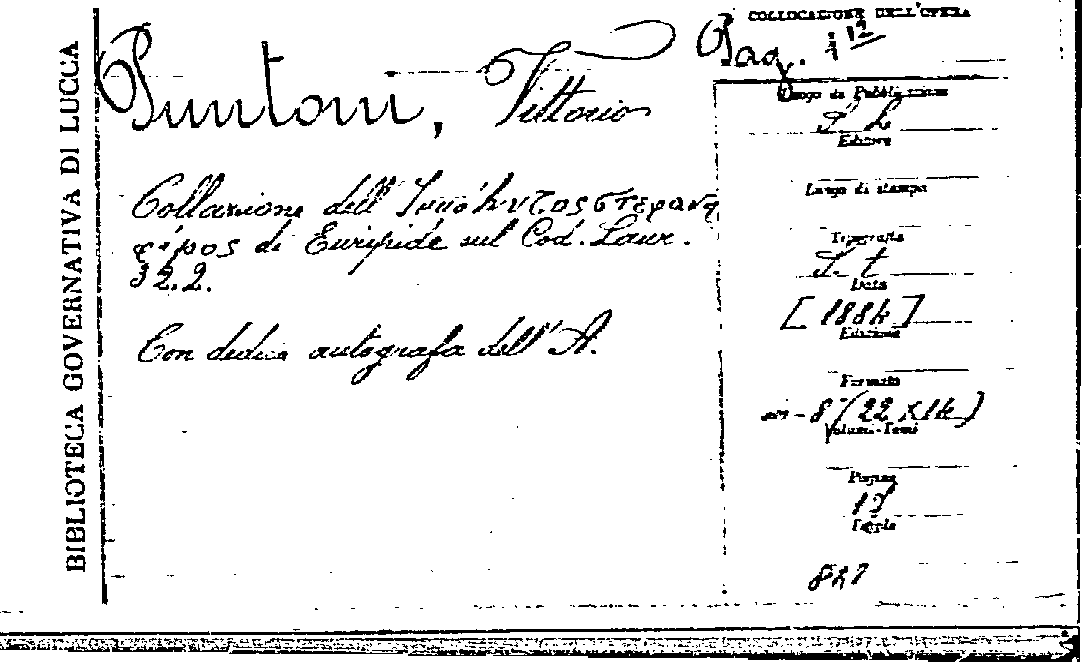 BIBLIOTECA GOVERNATIVA DI LUCCA
COLLOCAZIONE DELL'OPERA
Puntoni, Vittorio
Pag.
Luogo di Pubblicazione
S. L.
Editore
Collazione dell'
Luogo di stampa
di Euripide sul Cod. Laur.
Tipografia
32.2.
S. t.
Data
[1884]
Con dedica autografa dell'A.
Edizione
Formato
in-8° (22 x 14)
Volumi-Tomi
Pagine
Tavole